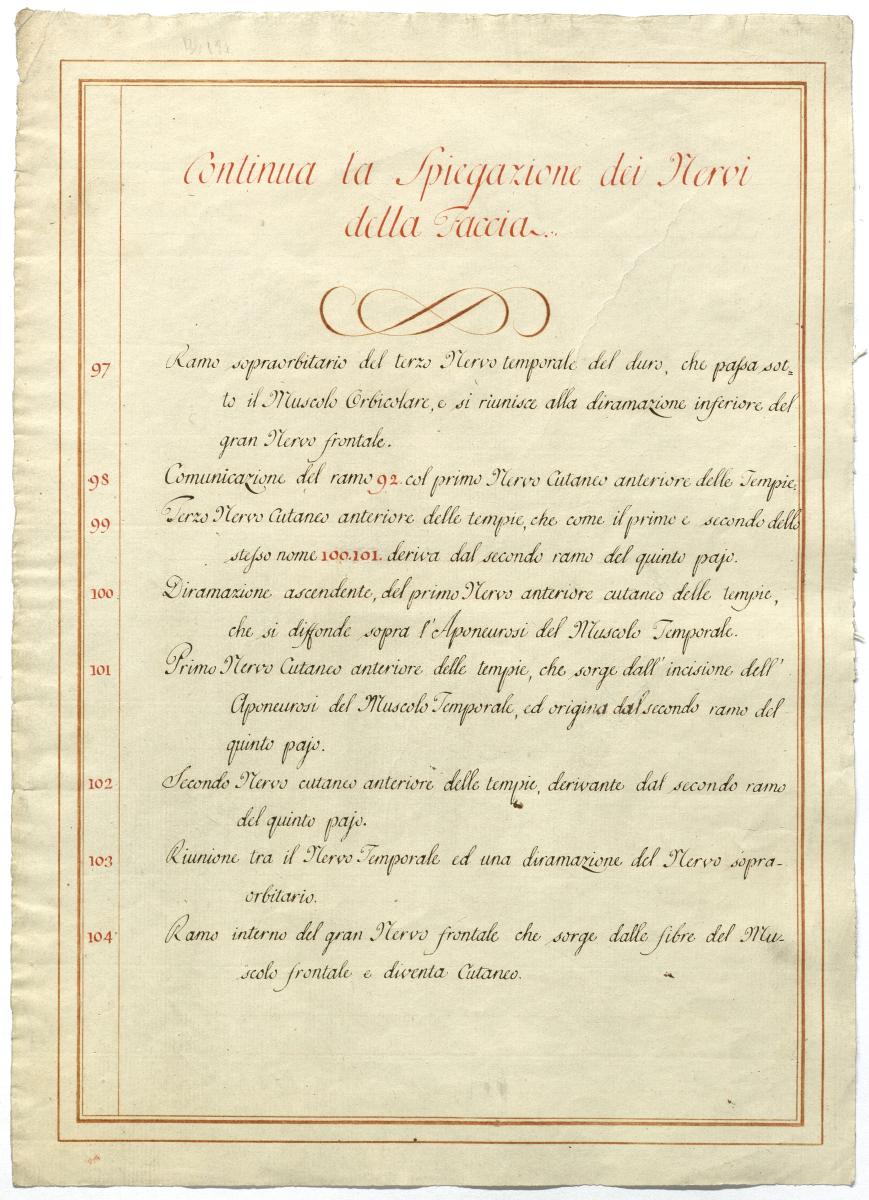 Continua la Spiegazione dei Nervi
della Faccia.
97 Ramo sopraorbitario del terzo Nervo temporale del duro, che paſsa sot=
to il Muscolo Orbicolare, e si riunisce alla diramazione inferiore del
gran Nervo frontale.
98 Comunicazione del ramo 92. col primo Nervo Cutaneo anteriore delle Tempie.
99 Terzo Nervo Cutaneo anteriore delle tempie, che come il primo e secondo dello
steſso nome 100.101. deriva dal secondo ramo del quinto pajo.
100 Diramazione ascendente, del primo Nervo anteriore cutaneo delle tempie,
che si diffonde sopra l'Aponeurosi del Muscolo Temporale.
101 Primo Nervo Cutaneo anteriore delle tempie, che sorge dall'incisione dell'
Aponeurosi del Muscolo Temporale, ed origina dal secondo ramo del
quinto pajo.
102 Secondo Nervo cutaneo anteriore delle tempie, derivante dal secondo ramo
del quinto pajo.
103 Riunione tra il Nervo Temporale ed una diramazione del Nervo sopra-
orbitario.
104 Ramo interno del gran Nervo frontale che sorge dalle fibre del Mu-
scolo frontale e diventa Cutaneo.